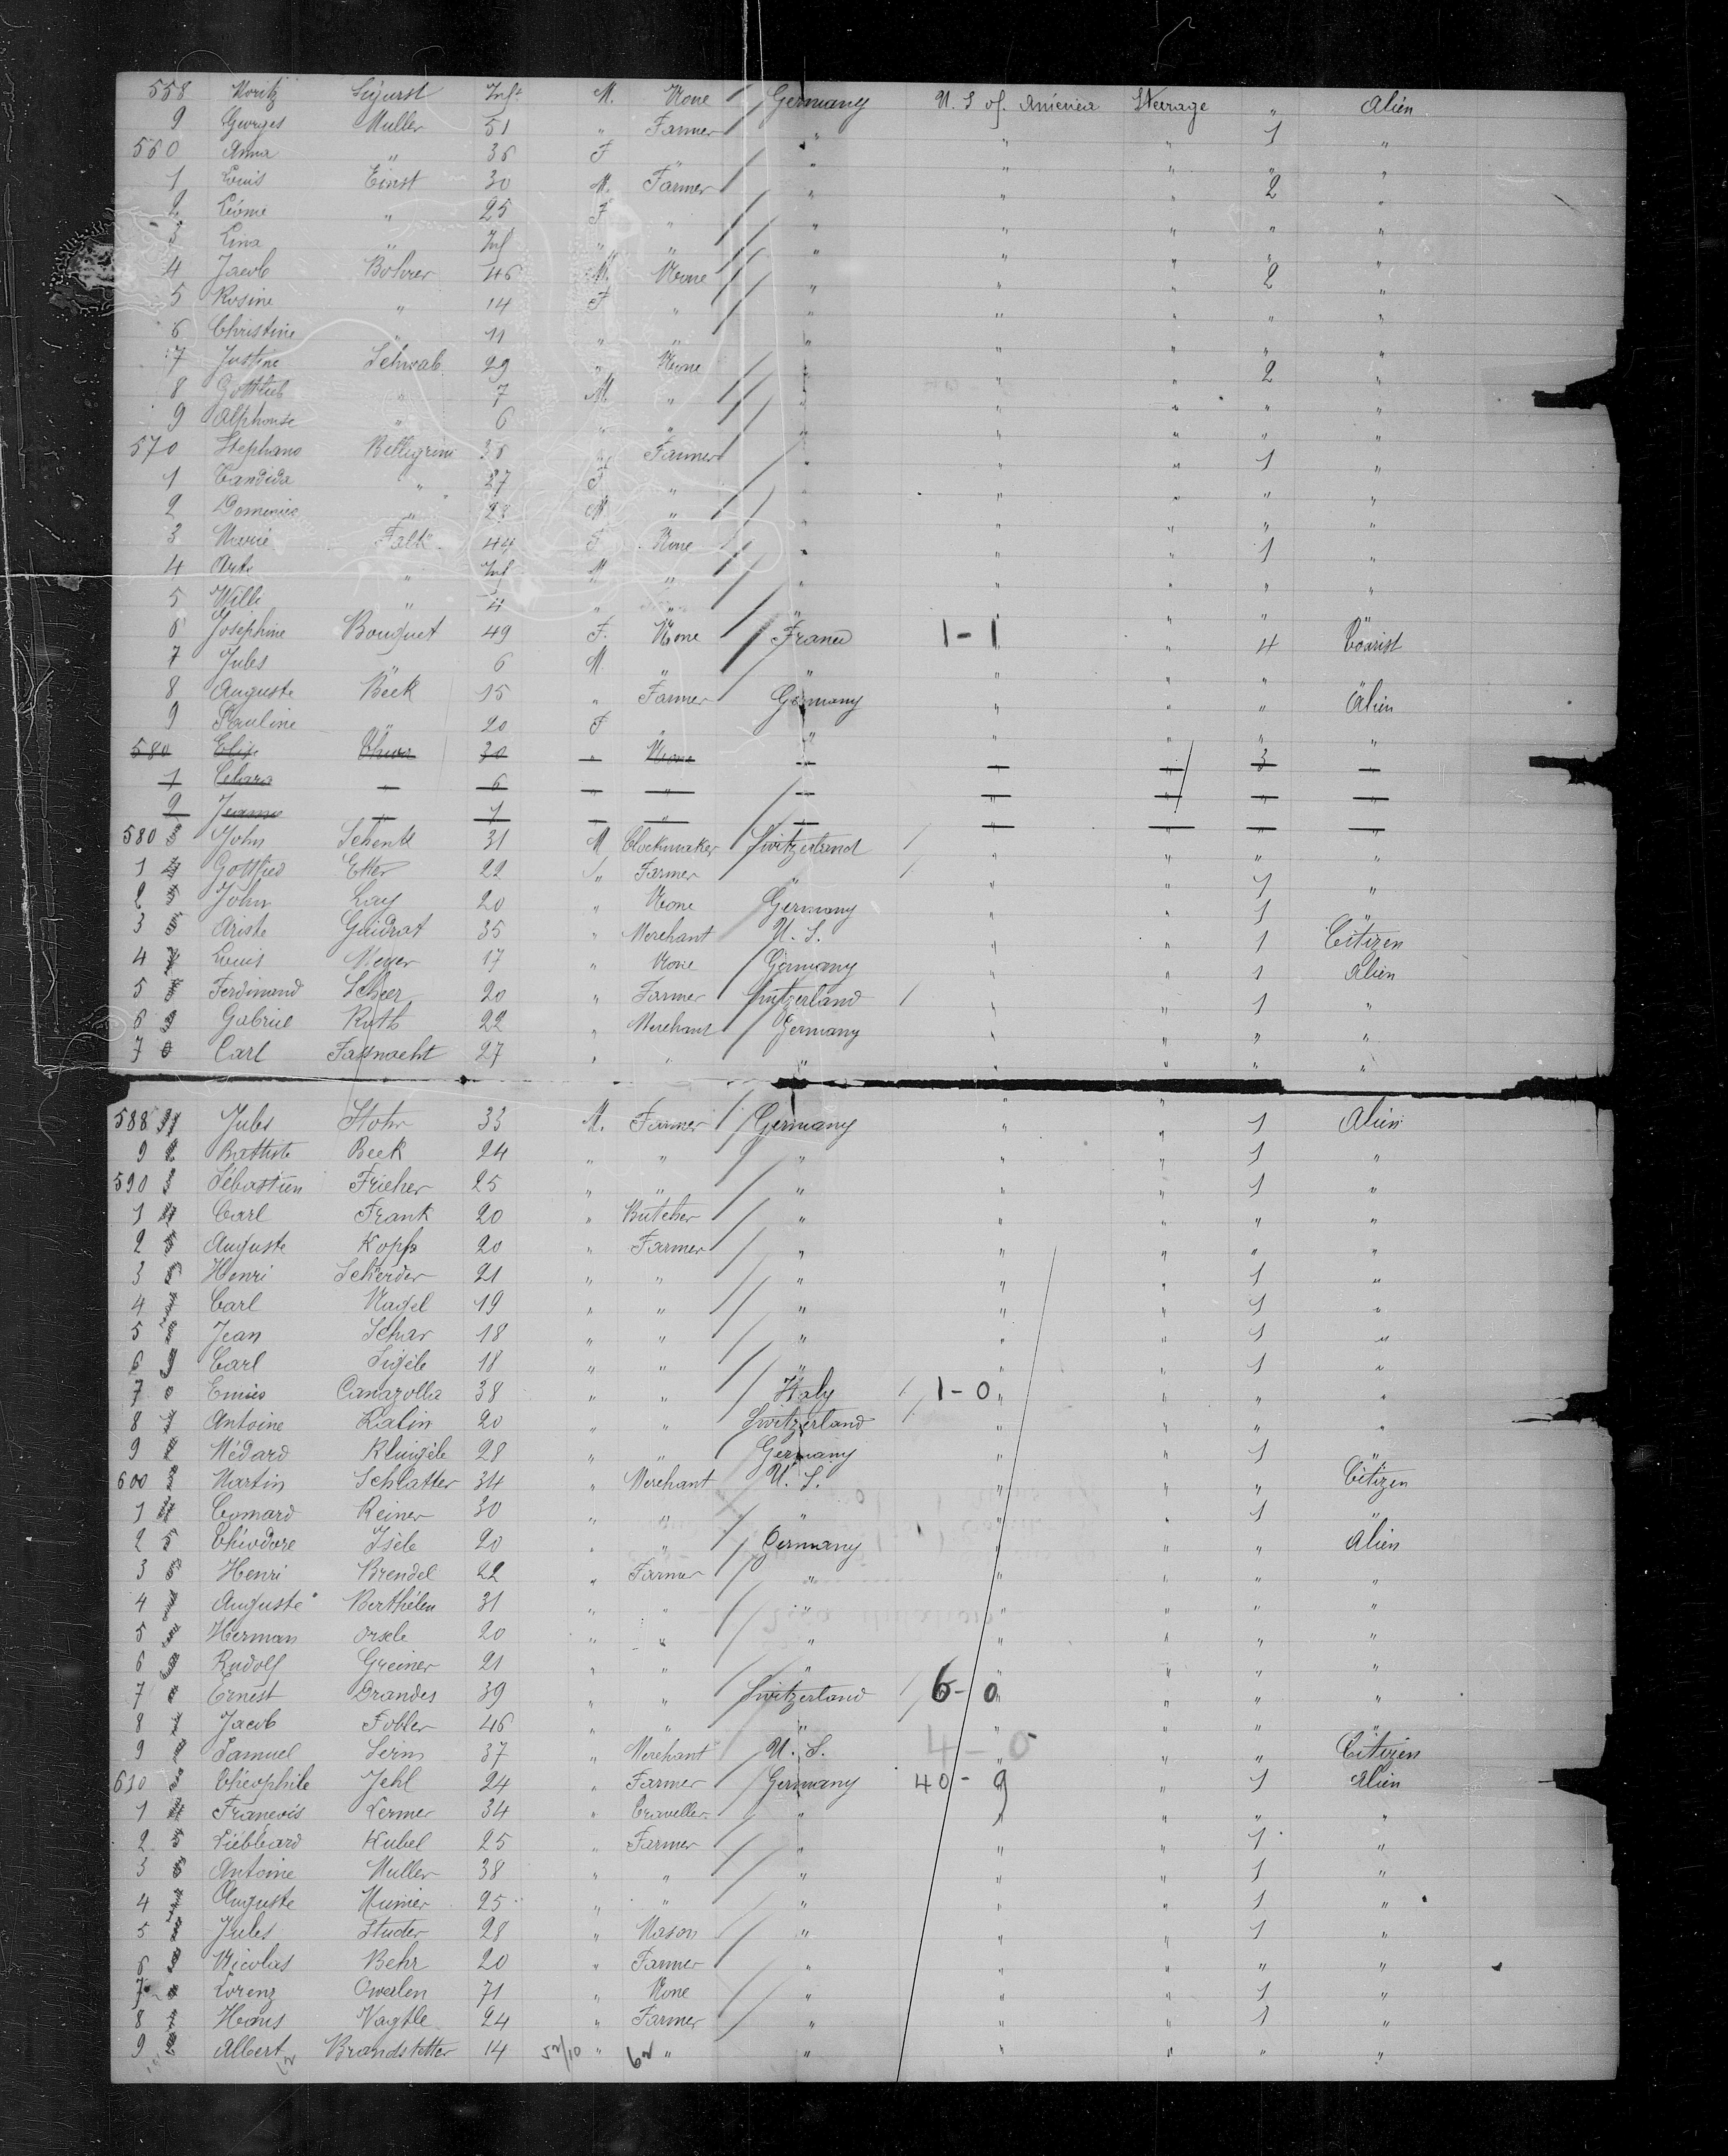 558 Moritz Sigurst Inft M. None Germany U. S of America Steerage " Alien
9 Georges Muller 51 " Farmer " " " 1 "
560 Anna " 36 F " " " " " "
1 Louis Ernst 30 M. Farmer " " " 2 "
2 Léonie " 25 F " " " " " "
3 Lina " Inf " " " " " " "
4 Jacob Bohrer 46 M. None " " " 2 "
5 Rosine " 14 F " " " " " "
6 Christine " 11 " " " " " " "
7 Justine Schwab 29 " None " " " 2 "
8 Gottlieb " 7 M. " " " " " "
9 Alphonse " 6 " " " " " " "
570 Stephano Pellegrini 38 " Farmer " " " 1 "
1 Candida " 27 F " " " " " "
2 Domenico " 28 M " " " " " "
3 Marie Falk 44 F. None " " " 1 "
4 " Inf M " " " " " "
5 Willi " 4 " " " " " " "
6 Joséphine Bouquet 49 F. None France 1-1 " 4 Tourist
7 Jules " 6 M. " " " " " "
8 Auguste Beck 15 " Farmer Germany " " " Alien
9 Pauline " 20 F " " " " " "
580 Elise 30 " None " " " 3 "
1 " 6 " " " " " " "
2 Jeanne " 1 " " " " " " "
580 John Schenk 31 M Clockmaker Switzerland " " " "
1 Gottfied Etter 22 " Farmer " " " 1 "
2 John Lay 20 " None Germany " " 1 "
3 Ariste Guidrot 35 " Merchant U. S. " " 1 Citizen
4 Louis Meyer 17 " None Germany " " 1 Alien
5 Ferdinand Scheer 20 " Farmer Switzerland " " 1 "
6 Gabriel Roth 22 " Merchant Germany " " " "
7 Carl Fassnacht 27 " " " " " " "
588 Jules Stohr 33 M. Farmer Germany " " 1 Alien
9 Battiste Beek 24 " " " " " 1 "
590 Sébastien Frieher 25 " " " " " 1 "
1 Carl Frank 20 " Butcher " " " " "
2 Auguste Kopp 20 " Farmer " " " " "
3 Henri Scherder 21 " " " " " 1 "
4 Carl Nagel 19 " " " " " 1 "
5 Jean Schar 18 " " " " " 1 "
6 Carl Sigele 18 " " " " " 1 "
7 Canazolla 38 " " Italy 1-0 " " " "
8 Antoine Kalin 20 " " Switzerland " " " "
9 Médard Klingele 28 " " Germany " " 1 "
600 Martin Schlatter 34 " Merchant U. S. " " " Citizen
1 Reiner 30 " " " " " 1 "
2 Théodore Isele 20 " " Germany " " " Alien
3 Henri Brendel 22 " Farmer " " " " "
4 Auguste Berthélen 31 " " " " " " "
5 Herman Orsele 20 " " " " " " "
6 Rudolf Greiner 21 " " " " " " "
7 Ernest Drandes 39 " " Switzerland 6-0 " " " "
8 Jacob Fobler 46 " " " " " " "
9 Samuel 37 " Merchant U. S. 4-0 " " " Citizen
610 Théophile Jehl 24 " Farmer Germany 40-9 " 1 Alien
1 François Lermer 34 " Traveller " " " " "
2 Kubel 25 " Farmer " " " 1 "
3 Antoine Muller 38 " " " " " 1 "
4 Auguste Munier 25 " " " " " 1 "
5 Jules Studer 28 " Mason " " " 1 "
6 Nicolas Behr 20 " Farmer " " " " "
7 Lorenz Owerlen 71 " None " " " 1 "
8 Hans Vogtle 24 " Farmer " " " 1 "
9 Albert Brandstetter 14 52/10 " 62 " " " " " "